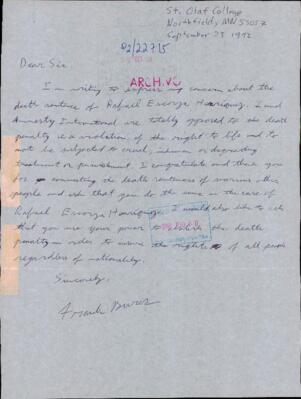 St. Olaf College
Northfield, MN 55057
September 25 1992
02/22715
Dear Sir,
ARCHIVO
I am writing to express my concern about the
death sentence of Rafael I and
Amnesty International are totally opposed to the death
penalty as a violation of the right to life and to
not be subjected to cruel, inhuman or degrading
treatment or punishment. I congratulate and thank you
for commuting the death sentences of various other
people and ask that you do the same in the case of
Rafael I would also like to ask
that you use your power to abolish the death
penalty in order to ensure the rights of all people
regardless of nationality.
Sincerely,